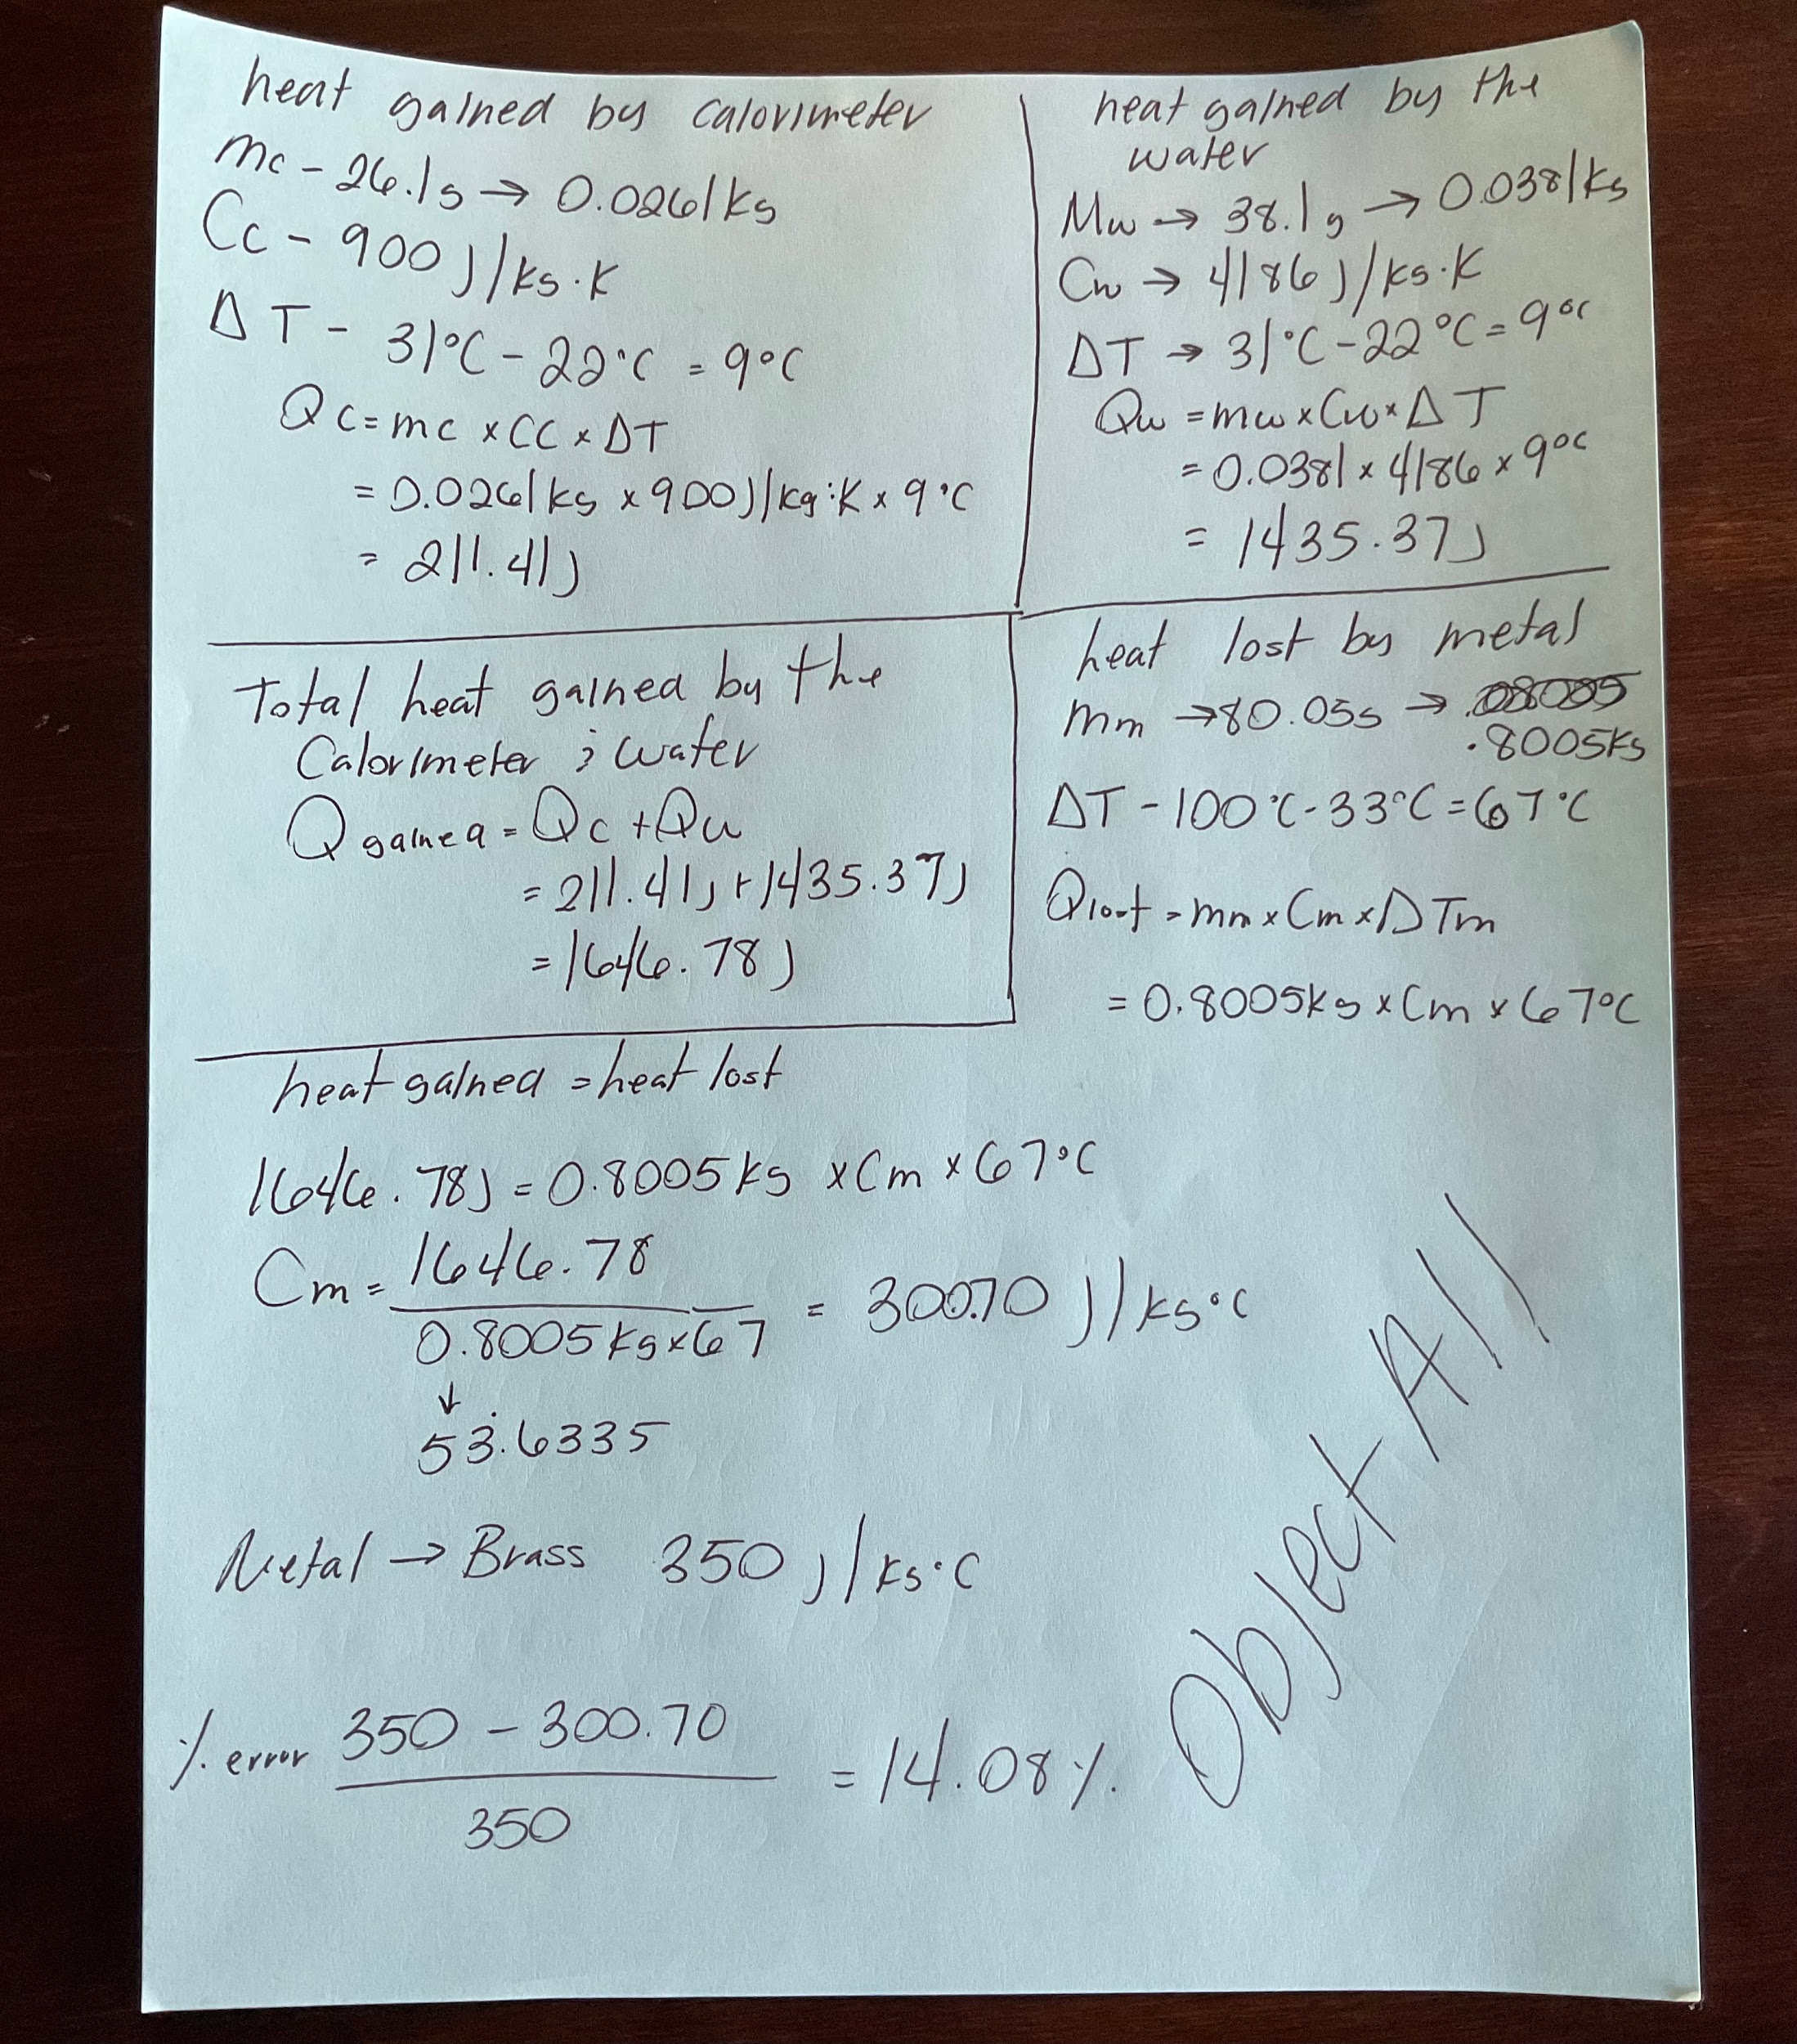 heat gained by calorimeter
mc - 26.1g → 0.0261kg
Cc - 900 J/kg·K
ΔT - 31°C - 22°C = 9°C
Qc = mc × Cc × ΔT
= 0.0261kg × 900J/kg·K × 9°C
= 211.41J
heat gained by the
water
Mw → 38.1g → 0.0381kg
Cw → 4186J/kg·K
ΔT → 31°C - 22°C = 9°C
Qw = mw × Cw × ΔT
= 0.0381 × 4186 × 9°C
= 1435.37J
Total heat gained by the
Calorimeter & water
Q gained = Qc + Qw
= 211.41J + 1435.37J
= 1646.78J
heat lost by metal
mm → 80.05g →
.8005kg
ΔT - 100°C - 33°C = 67°C
Qlost = mm × Cm × ΔTm
= 0.8005kg × Cm × 67°C
heat gained = heat lost
1646.78J = 0.8005kg × Cm × 67°C
Cm = 1646.78 / 0.8005kg × 67 = 300.70 J/kg°C
↓
53.6335
Metal → Brass 350 J/kg·C
% error 350 - 300.70 / 350 = 14.08%
Object All